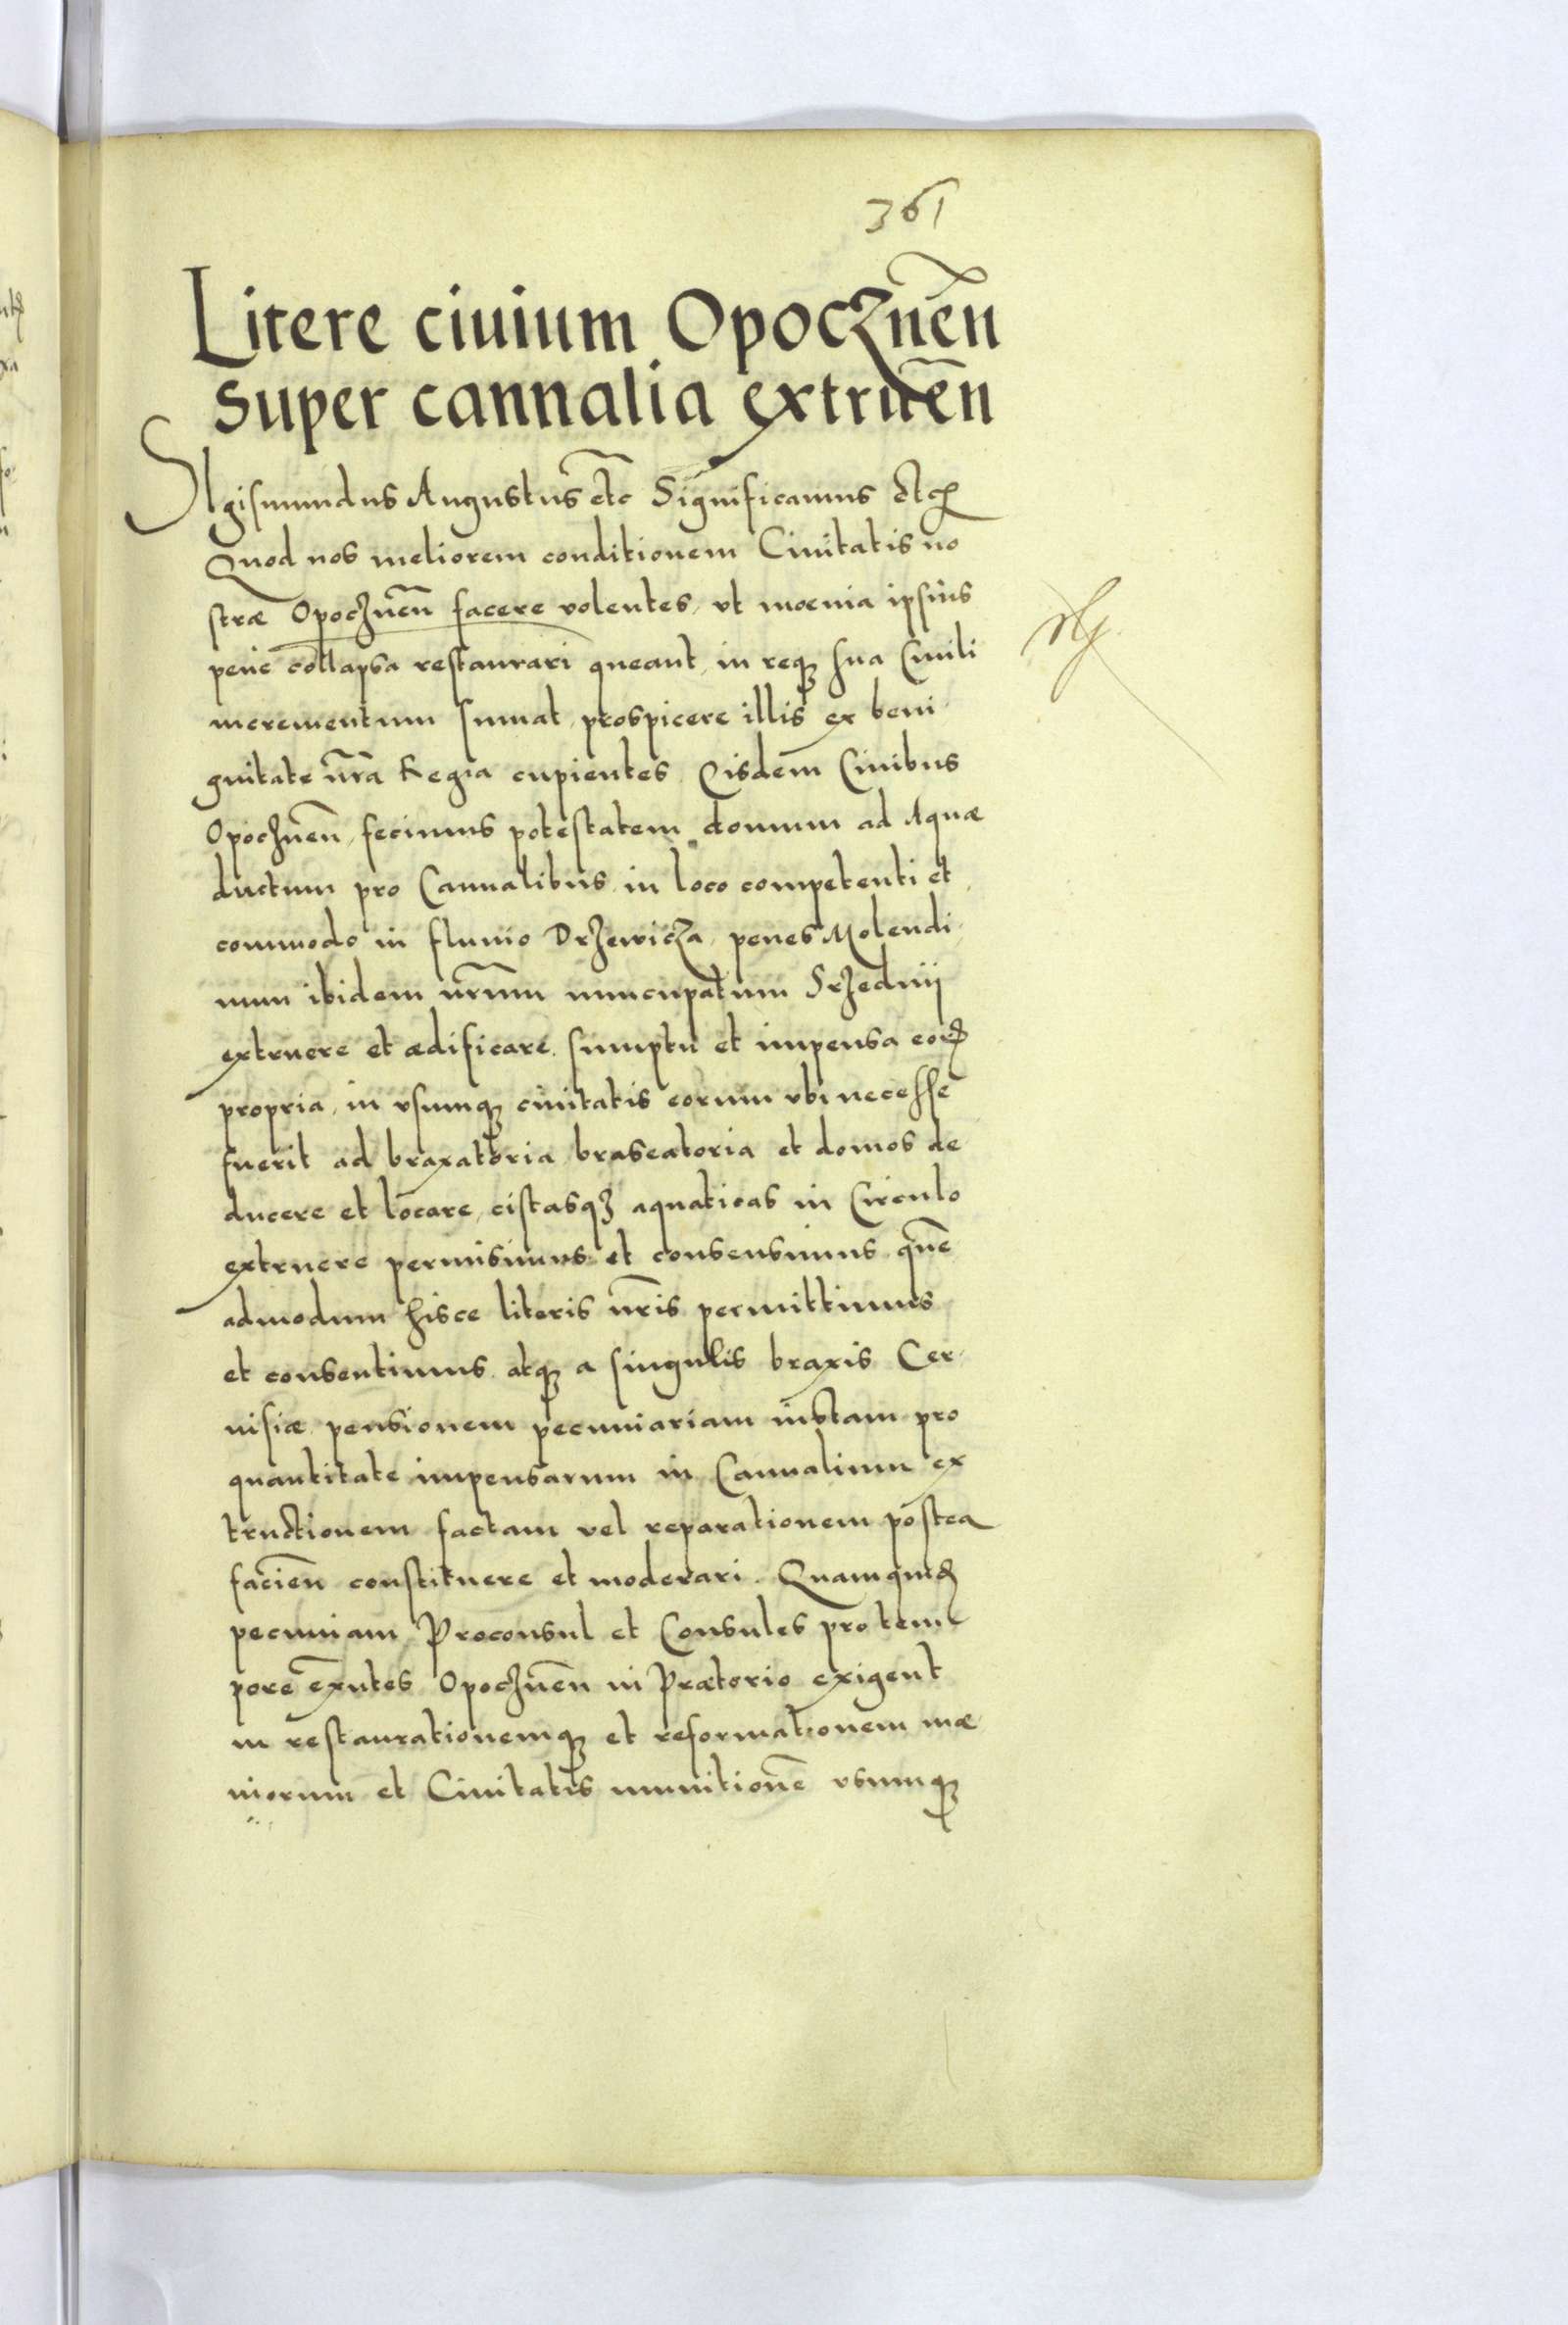 361
Litere ciuium Opocznen̄
super cannalia extruen̄
SIgismundus Augustus etc̄ Significamus etc
Quod nos meliorem conditionem Ciuitatis no
stræ Opocznen̄ facere volentes, vt moenia ipsius
pene collapsa restaurari queant, in reqꝫ sua Ciuili
incrementum sumat, prospicere illis ex beni
gnitate nr̄a Regia cupientes. Eisdem Ciuibus
Opocznen̄, fecimus potestatem domum ad Aquæ
ductum pro Cannalibus in loco competenti et
commodo in fluuio Drzewicza, penes Molendi
num ibidem nr̄um nuncupatum Srzednij
extruere et ædificare. sumptu et impensa eorꝝ
propria, in vsumqꝫ ciuitatis eorum vbi necesse
fuerit ad braxatoria braseatoria et domos de
ducere et locare, cistasqꝫ aquaticas in Circulo
extruere permisimus et consensimus quē
admodum hisce literis nr̄is permittimus
et consentimus. atqꝫ a singulis braxis Cer
uisiæ pensionem pecuniariam iustam pro
quantitate impensarum in Cannalium ex
tructionem factam vel reparationem postea
facien̄ constituere et moderari. Quamquidē
pecuniam Proconsul et Consules pro tem
pore exn̄tes Opocznen̄ in Prætorio exigent
in restaurationemqꝫ et reformationem mæ
niorum et Ciuitatis munitionē vsumqꝫ